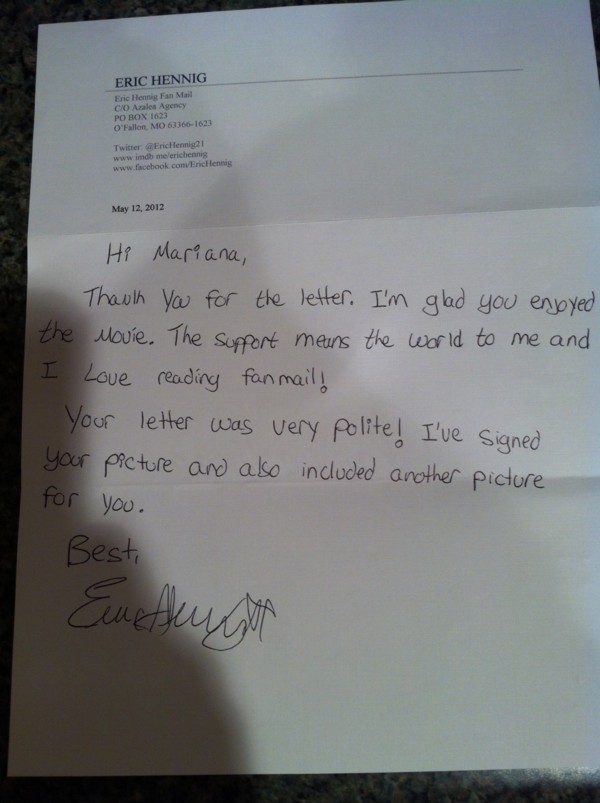 ERIC HENNIG
Eric Hennig Fan Mail
C/O Azalea Agency
PO BOX 1623
O'Fallon, MO 63366-1623
Twitter @EricHennig21
www.imdb.me/erichennig
www.facebook.com/EricHennig
May 12, 2012
Hi Mariana,
Thank You for the letter. I'm glad you enjoyed
the Movie. The support means the world to me and
I Love reading fanmail!
Your letter was very polite! I've signed
your picture and also included another picture
for you.
Best,